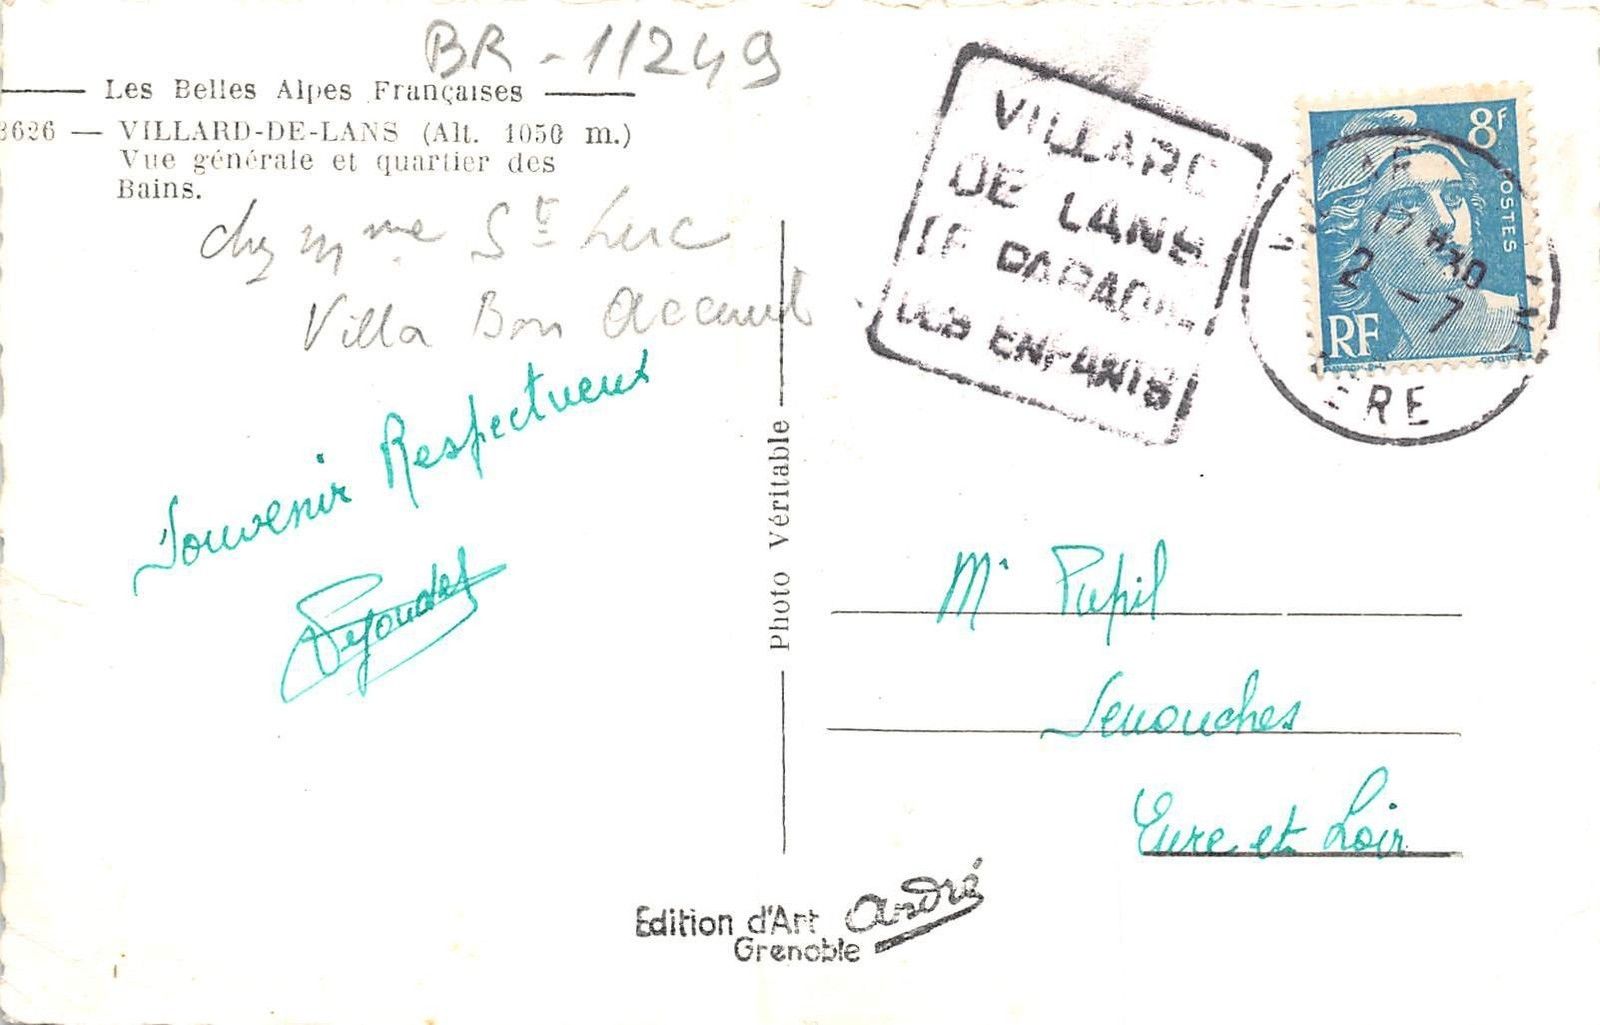 BR - 11249
Les Belles Alpes Françaises
3626 — VILLARD-DE-LANS (Alt. 1050 m.)
Vue générale et quartier des
Bains.
chez Mme St Luc
Villa Bon Accueil
Souvenir Respectueux
Photo Véritable
VILLARD
DE LANS
LE PARADIS
DES ENFANTS
8F
POSTES
RF
17 H30
2 - 7
ERE
Mr Pupil
Senonches
Eure et Loir
Edition d'Art André
Grenoble